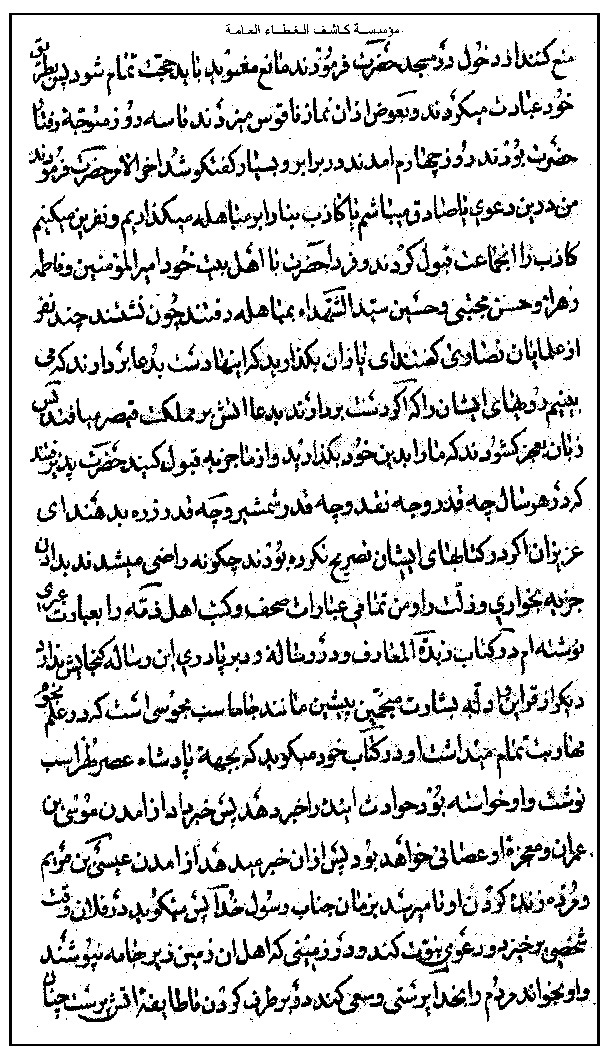 مؤسسة كاشف الغطاء العامة
منع کنند از دخول در مسجد حضرت فرمودند مانع مشوید باید حجت تمام شود پس بطریق
خود عبادت میکردند و بعوض اذان نماز ناقوس میزدند تا سه روز متوجه رفتار
حضرت بودند روز چهارم امدند در برابر و بسیار گفتگو شد اخر الامر حضرت فرمودند
من در این دعوی یا صادق میباشم یا کاذب بنابر این مباهله میگذاریم و نفرین میکنیم
کاذب را انجماعت قبول کردند و فردا حضرت با اهل بیت خود امیر المؤمنین و فاطمه
زهرا و حسن مجتبی و حسین سید الشهداء بمباهله رفتند چون نشستند چند نفر
از علمایان نصاری گفتند ای یاران مگذارید که اینها دست بدعا بردارند که می
بینیم رویهای ایشان را که اگر دست بردارند بدعا اتش بر مملکت قیصر میافتد پس
زبان بعجز گشودند که ما را بدین خود بگذارید و از ما جزیه قبول کنید حضرت پذیرفتند
کردر هر سال چه قدر وجه نقد و چه قدر شمشیر و چه قدر زره بدهند ای
عزیزان اگر در کتابهای ایشان تصریح نکرده بودند چگونه راضی میشدند بدادن
جزیه بخواری و ذلت را و من تمامی عبارات صحف و کتب اهل ذمه را بعبارت عبری
نوشته ام در کتاب زبدة المعارف و در رساله رد بر پادری این رساله گنجایش ندارد
دیگر از قراین و ادله بشارت منجمین پیشین مانند جاماسب مجوسی است که در علم نجوم
مهارت تمام میداشت او در کتاب خود میگوید که بجهة پادشاه عصر طهراسب
نوشت و او خواسته بود حوادث اینده را خبر دهد پس خبر داد از امدن موسی بن
عمران و معجزه او عصائی خواهد بود پس از ان خبر میدهد از امدن عیسی بن مریم
و مرده زنده کردن او تا میرسد بزمان جناب رسول خدا پس میگوید در فلان وقت
شخصی برخیزد و دعوی نبوت کند در زمینی که اهل ان زمین زیر جامه نپوشند
و او بخواند مردم را بخدا پرستی و سعی کند در بر طرف کردن طایفه اتش پرست چنان